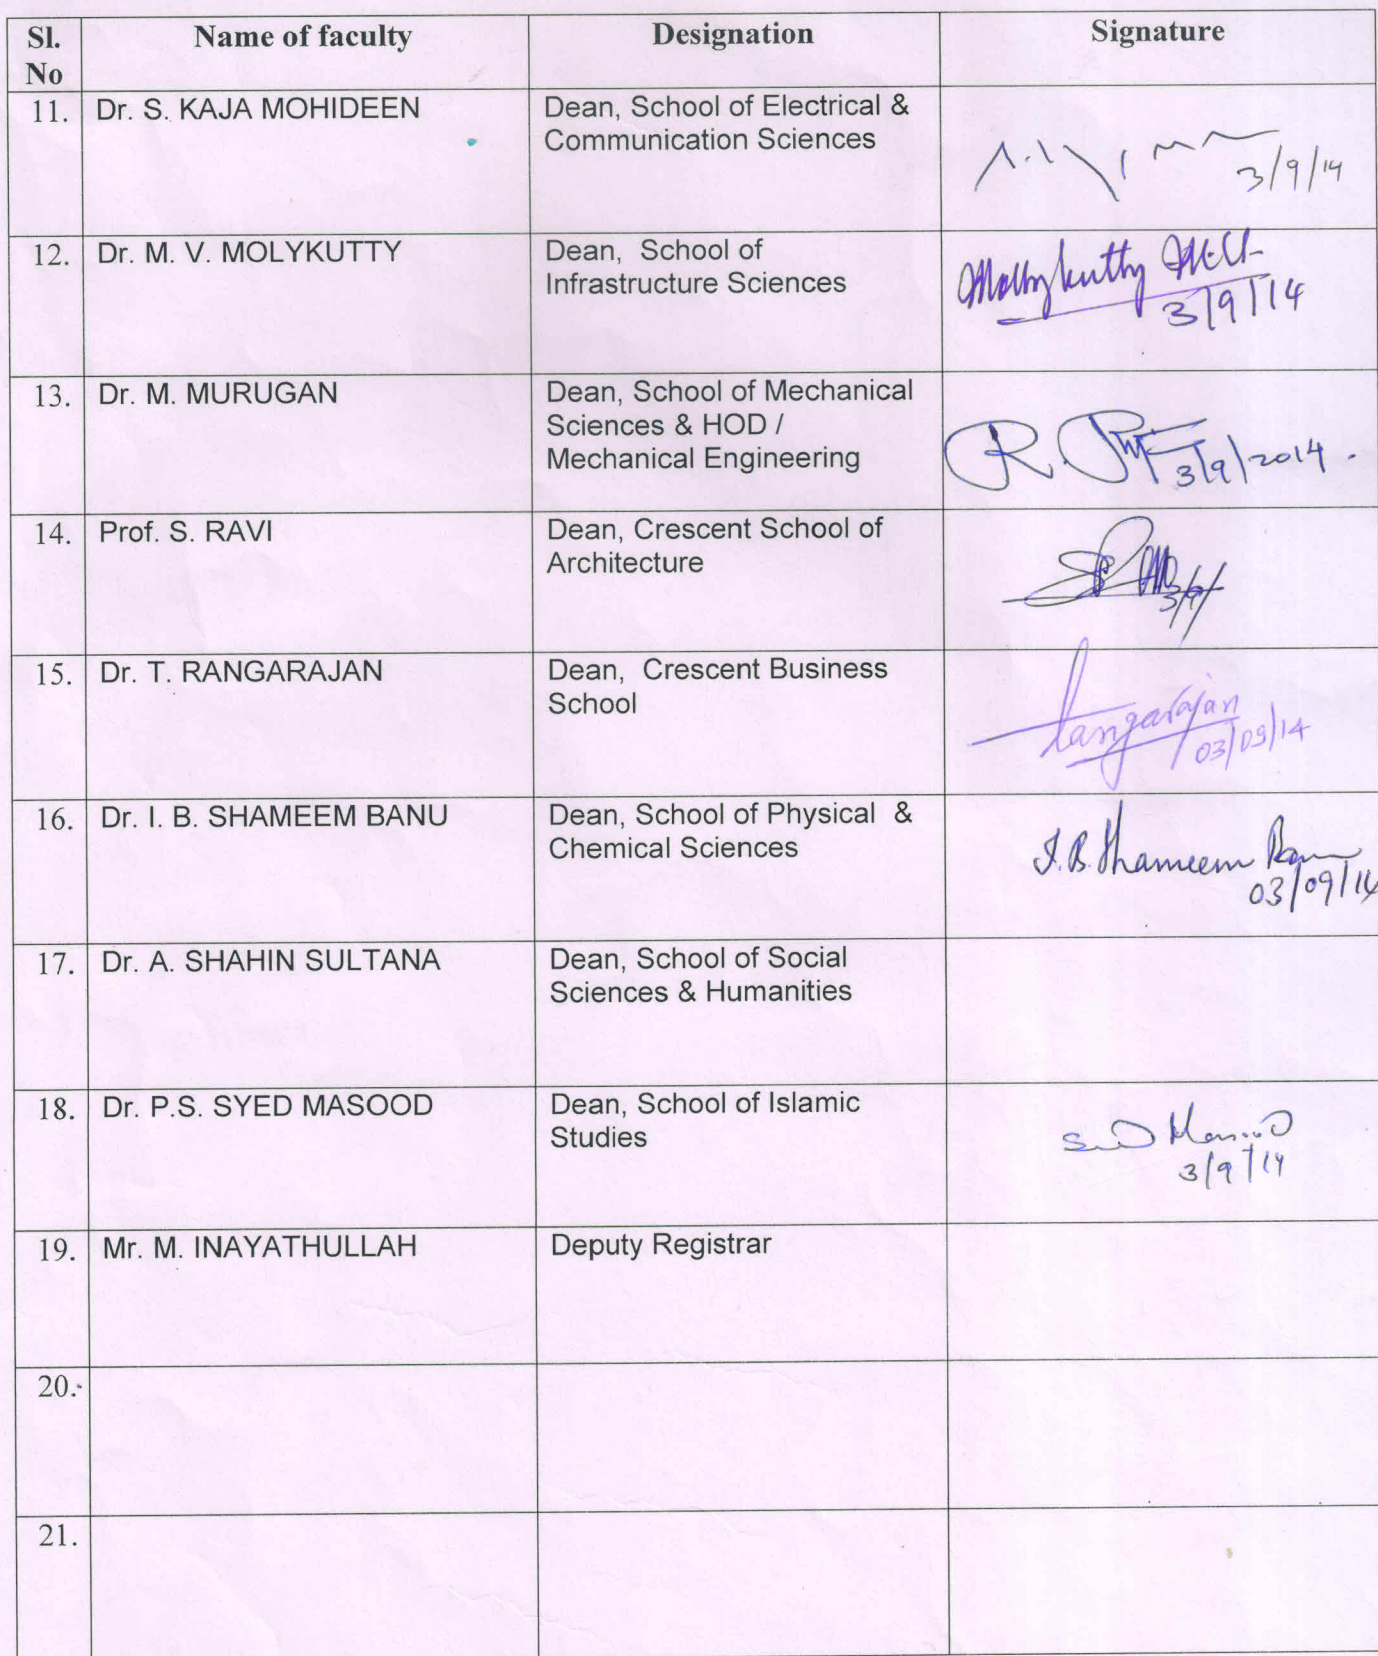 Sl. No Name of faculty Designation Signature
11. Dr. S. KAJA MOHIDEEN Dean, School of Electrical &
Communication Sciences
3/9/14
12. Dr. M. V. MOLYKUTTY Dean, School of
Infrastructure Sciences
Mollykutty
3/9/14
13. Dr. M. MURUGAN Dean, School of Mechanical
Sciences & HOD /
Mechanical Engineering
R.
3/9/2014.
14. Prof. S. RAVI Dean, Crescent School of
Architecture
3/9/
15. Dr. T. RANGARAJAN Dean, Crescent Business
School
Rangarajan
03/09/14
16. Dr. I. B. SHAMEEM BANU Dean, School of Physical &
Chemical Sciences
I.B. Shameem Banu
03/09/14
17. Dr. A. SHAHIN SULTANA Dean, School of Social
Sciences & Humanities
18. Dr. P.S. SYED MASOOD Dean, School of Islamic
Studies
3/9/14
19. Mr. M. INAYATHULLAH Deputy Registrar
20.
21.